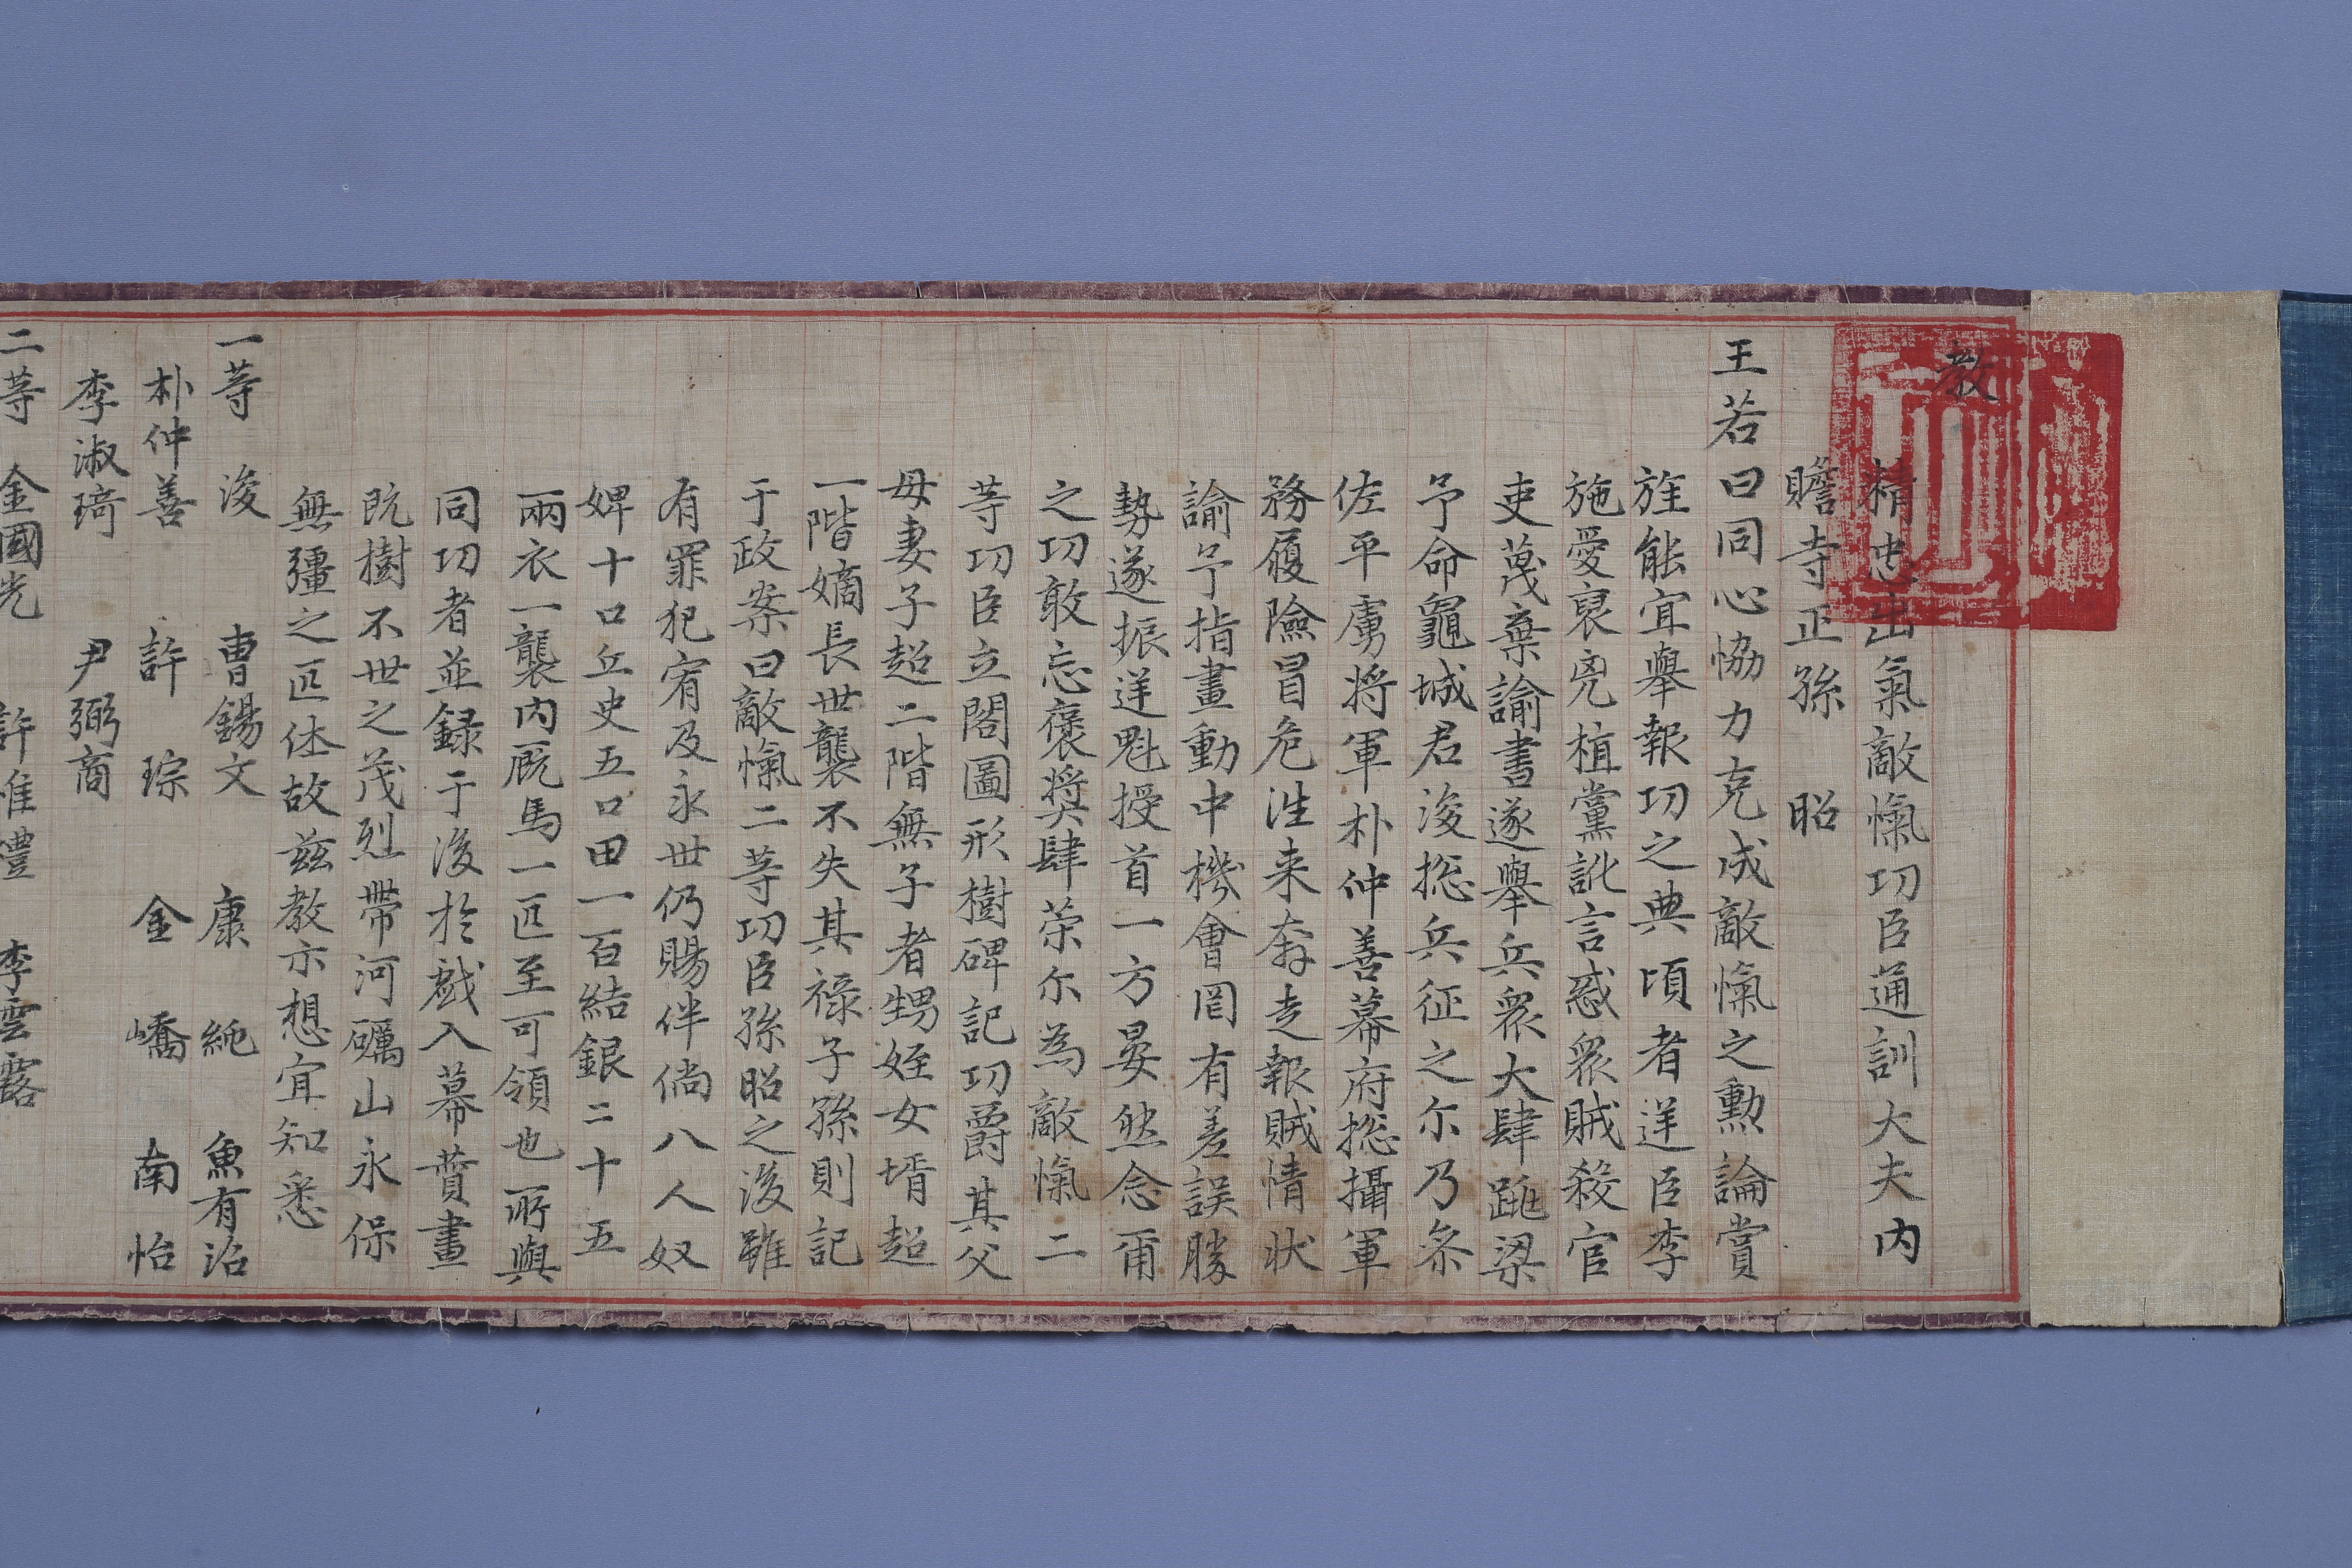 教
精忠出氣敵愾功臣通訓大夫內
贍寺正孫昭
王若曰同心協力克成敵愾之勳論賞
旌能宜舉報功之典頃者逆臣李
施愛裒兇植黨訛言惑衆賊殺官
吏蔑棄諭書遂舉兵衆大肆跳梁
予命龜城君浚捴兵征之尓乃叅
佐平虜將軍朴仲善幕府捴攝軍
務履險冒危往来奔走報賊情状
諭予指畫動中機會罔有差誤勝
勢遂振逆魁授首一方晏然念甭
之功敢忘褒奬肆荣尓為敵愾二
等功臣立閣圖形樹碑記功爵其父
母妻子超二階無子者甥姪女壻超
一階嫡長世襲不失其祿子孫則記
于政案曰敵愾二等功臣孫昭之後雖
有罪犯宥及永世仍賜伴倘八人奴
婢十口丘史五口田一百結銀二十五
兩衣一襲內廐馬一匹至可領也所與
同功者並録于後於戲入幕賛畫
既樹不世之茂烈帶河礪山永保
無彊之匹休故茲教示想宜知悉
一等 浚 曺錫文 康純 魚有沼
朴仲善 許琮 金嶠 南怡
李淑琦 尹弼商
二等 金國光 許惟禮 李雲露